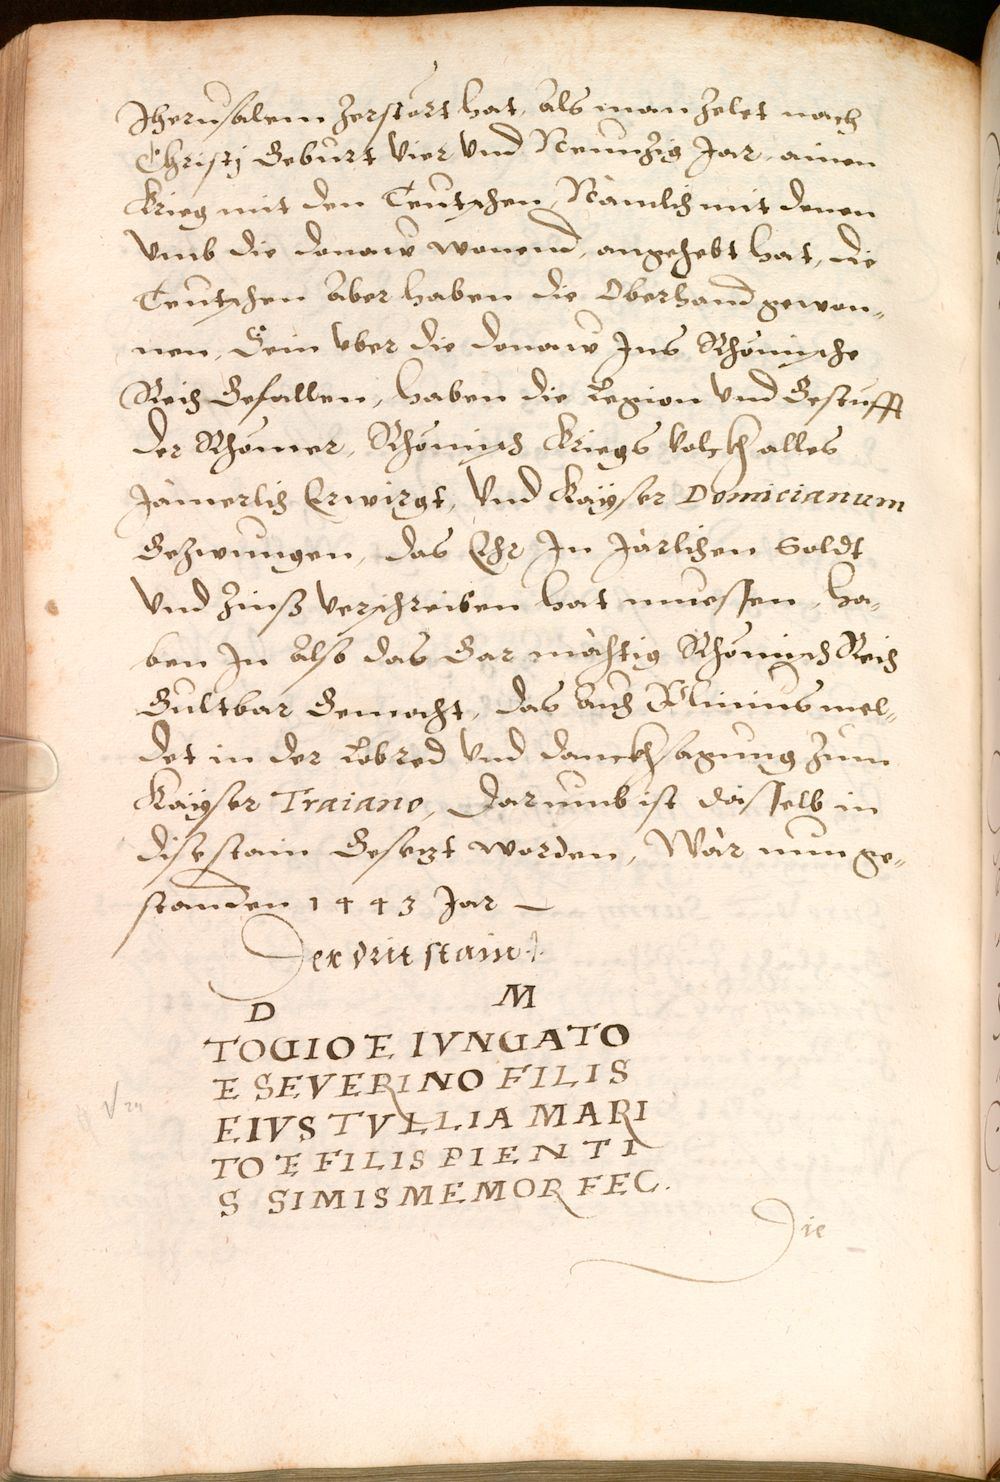 Jherusalem zerstört hat, als man zelet nach
Christj Geburt Vier Vnd Neunzig Jar, ainen
Krieg mit den Teutschen, Nämlich mit denen
Vmb die donaw wonend, angehebt hat, die
Teutschen aber haben die Oberhand gewon„
nen, Sein vber die donaw Jns Rhömische
Reich Gefallen, haben die Legion Vnd Gestufft
der Rhömer, Rhömisch Kriegs volckh alles
Jämerlich Erwirgt, Vnd Kayser Domicianum
Gezwungen, das Ehr Jn Järlichen Soldt
Vnd Zinß verschreiben hat muessen, ha„
ben Jn also das Gar mächtig Rhömisch Reich
Gultbar Gemacht, das auch Plinius mel„
det in der Lobred Vnd danckhsagung zum
Kayser Traiano, Darumb ist dasselb in
dise stain Gesezt worden, Wär nun ge„
standen 1443 Jar —
Der drit stain.
D M
TOGIO E IVNGATO
E SEVERINO FILIS
EIVS TVLLIA MARI
TO E FILIS PIENTI
S SIMIS MEMOR FEC.
Die